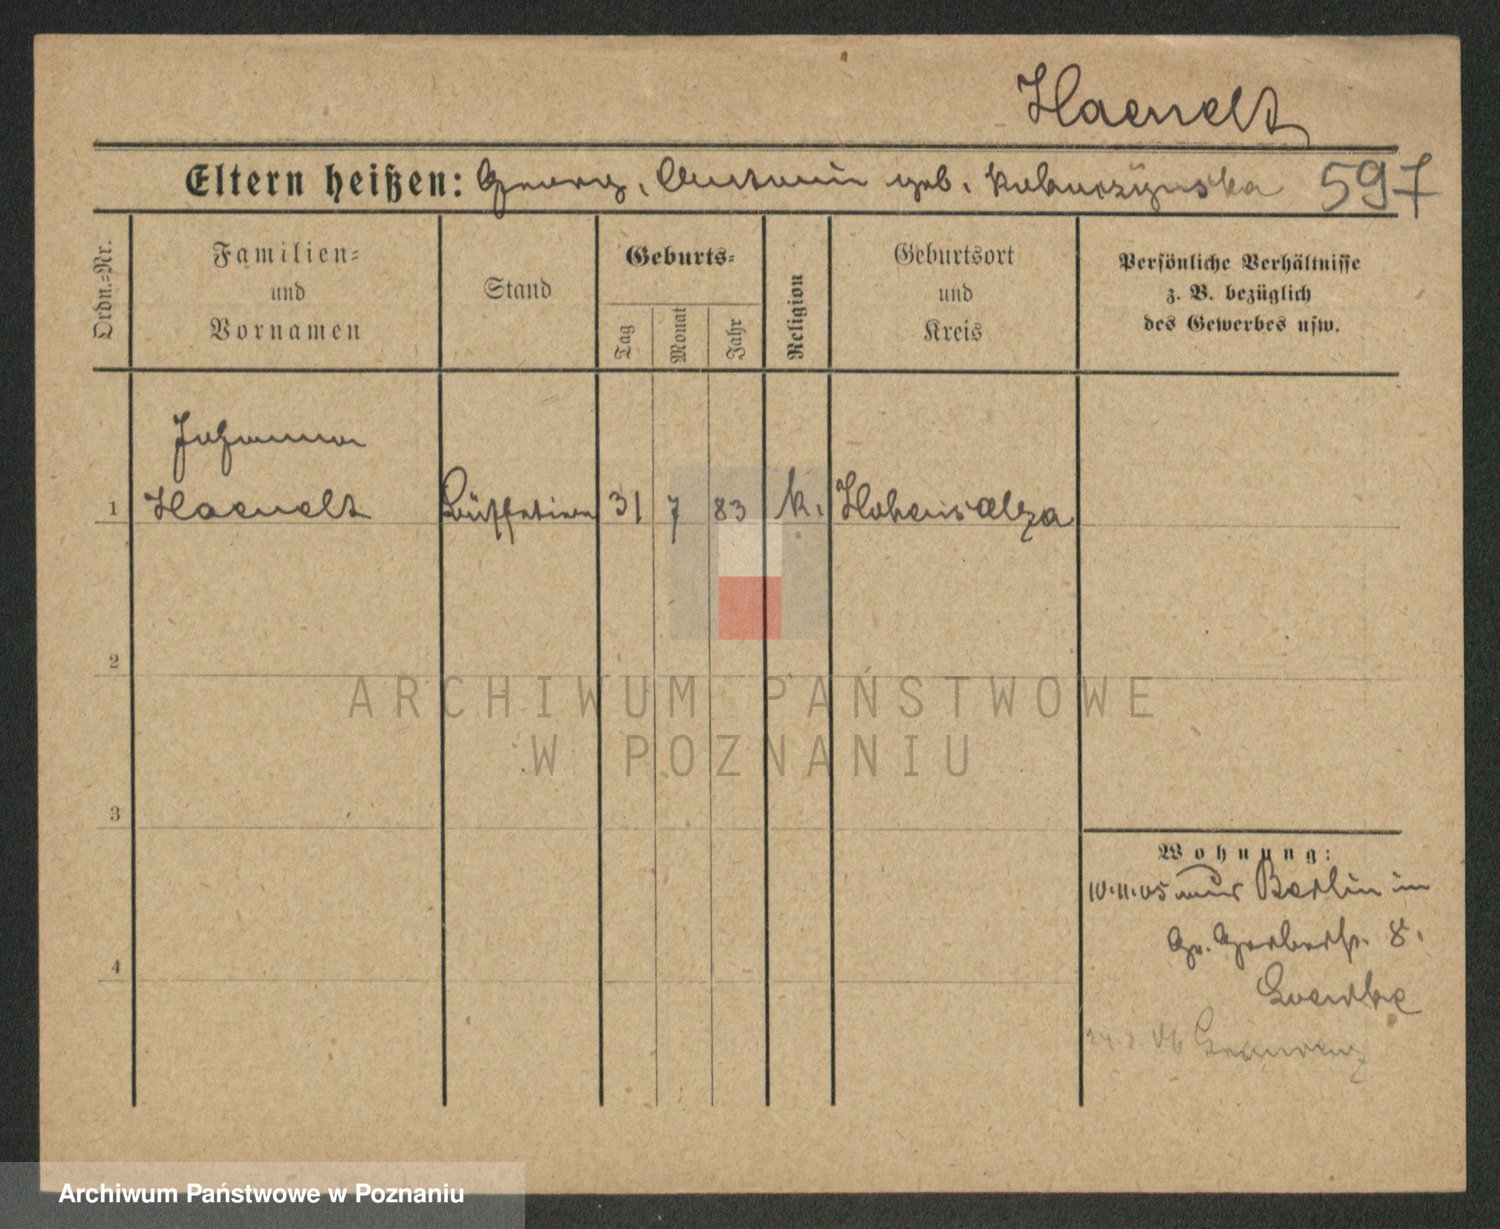 Haendt
Eltern heißen: Georg, Antonie geb. Kaburzynska 597
Ordn.-Nr.
Familien-
und
Vornamen
Stand
Geburts-
Tag
Monat
Jahr
Religion
Geburtsort
und
Kreis
Persönliche Verhältnisse
z. B. bezüglich
des Gewerbes usw.
Johanna
1 Haendt Büffetiere 31 7 83 k. Hohensalza
2
ARCHIWUM PAŃSTWOWE
W POZNANIU
3
Wohnung:
10.11.05 aus Berlin in
Gr. Gerberstr. 8.
4
Archiwum Państwowe w Poznaniu